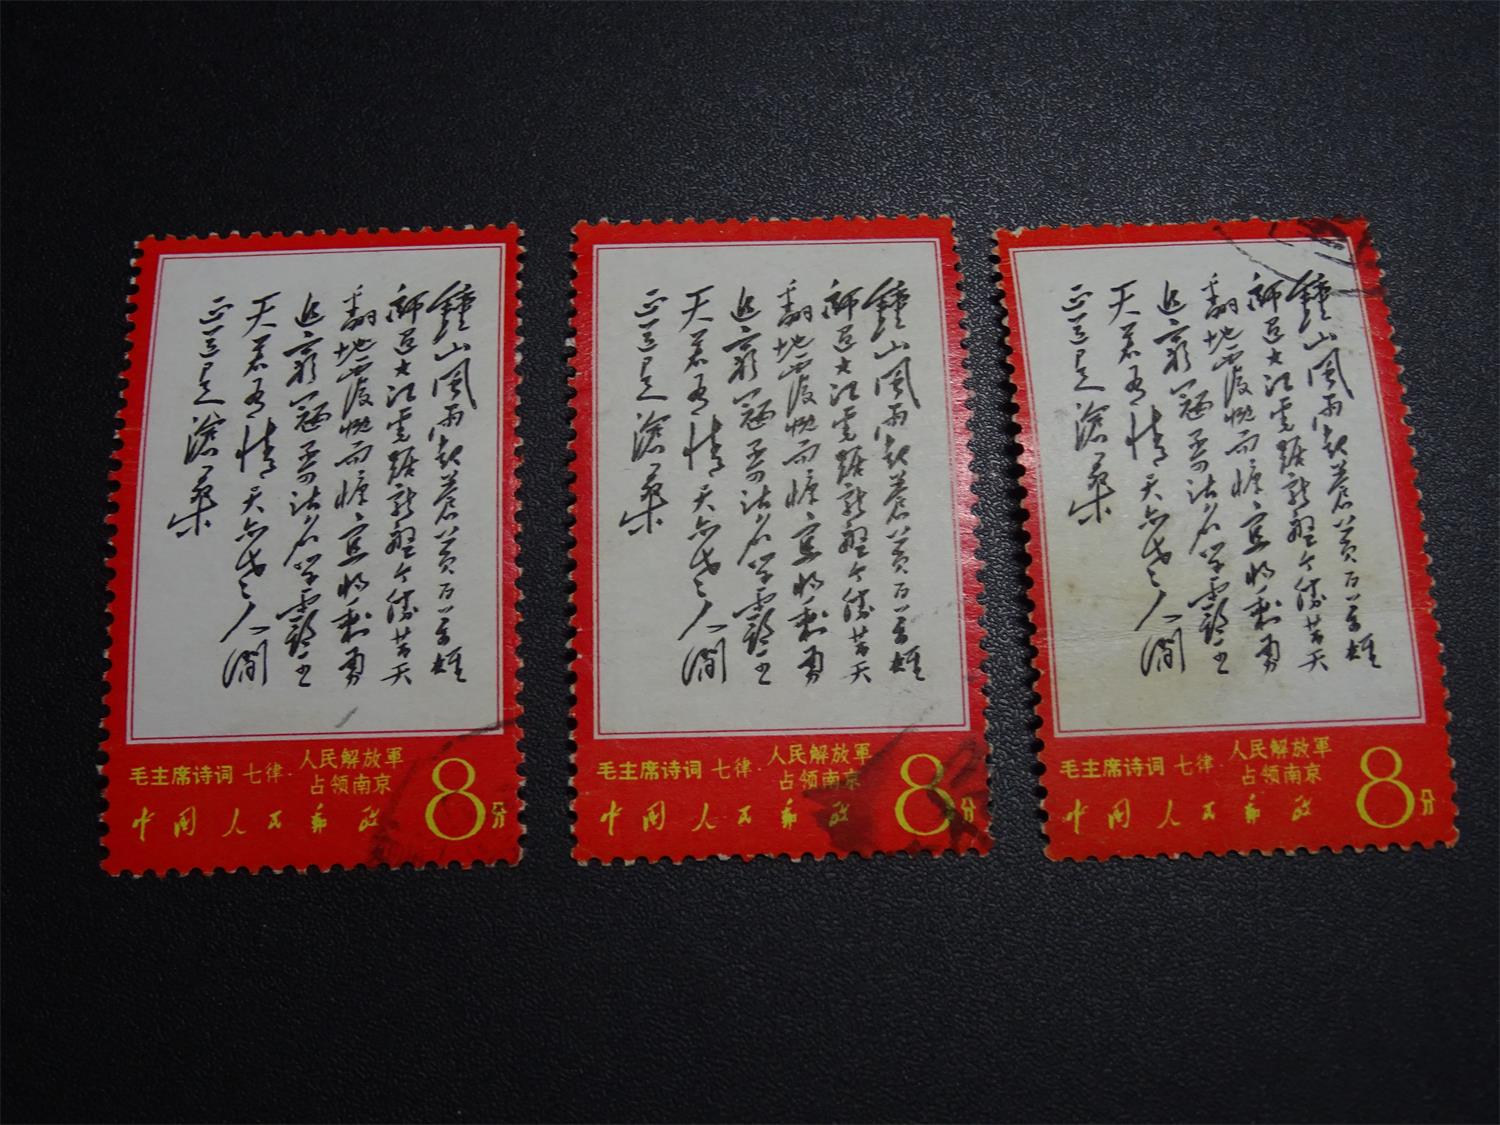 鍾山風雨起蒼黄百万雄
師过大江虎踞龙盘今胜昔天
翻地覆慨而慷宜将剩勇
追窮寇不可沽名学霸王
天若有情天亦老人間
正道是滄桑
毛主席诗词 七律·人民解放軍
占领南京
中国人民邮政 8分
鍾山風雨起蒼黄百万雄
師过大江虎踞龙盘今胜昔天
翻地覆慨而慷宜将剩勇
追窮寇不可沽名学霸王
天若有情天亦老人間
正道是滄桑
毛主席诗词 七律·人民解放軍
占领南京
中国人民邮政 8分
鍾山風雨起蒼黄百万雄
師过大江虎踞龙盘今胜昔天
翻地覆慨而慷宜将剩勇
追窮寇不可沽名学霸王
天若有情天亦老人間
正道是滄桑
毛主席诗词 七律·人民解放軍
占领南京
中国人民邮政 8分